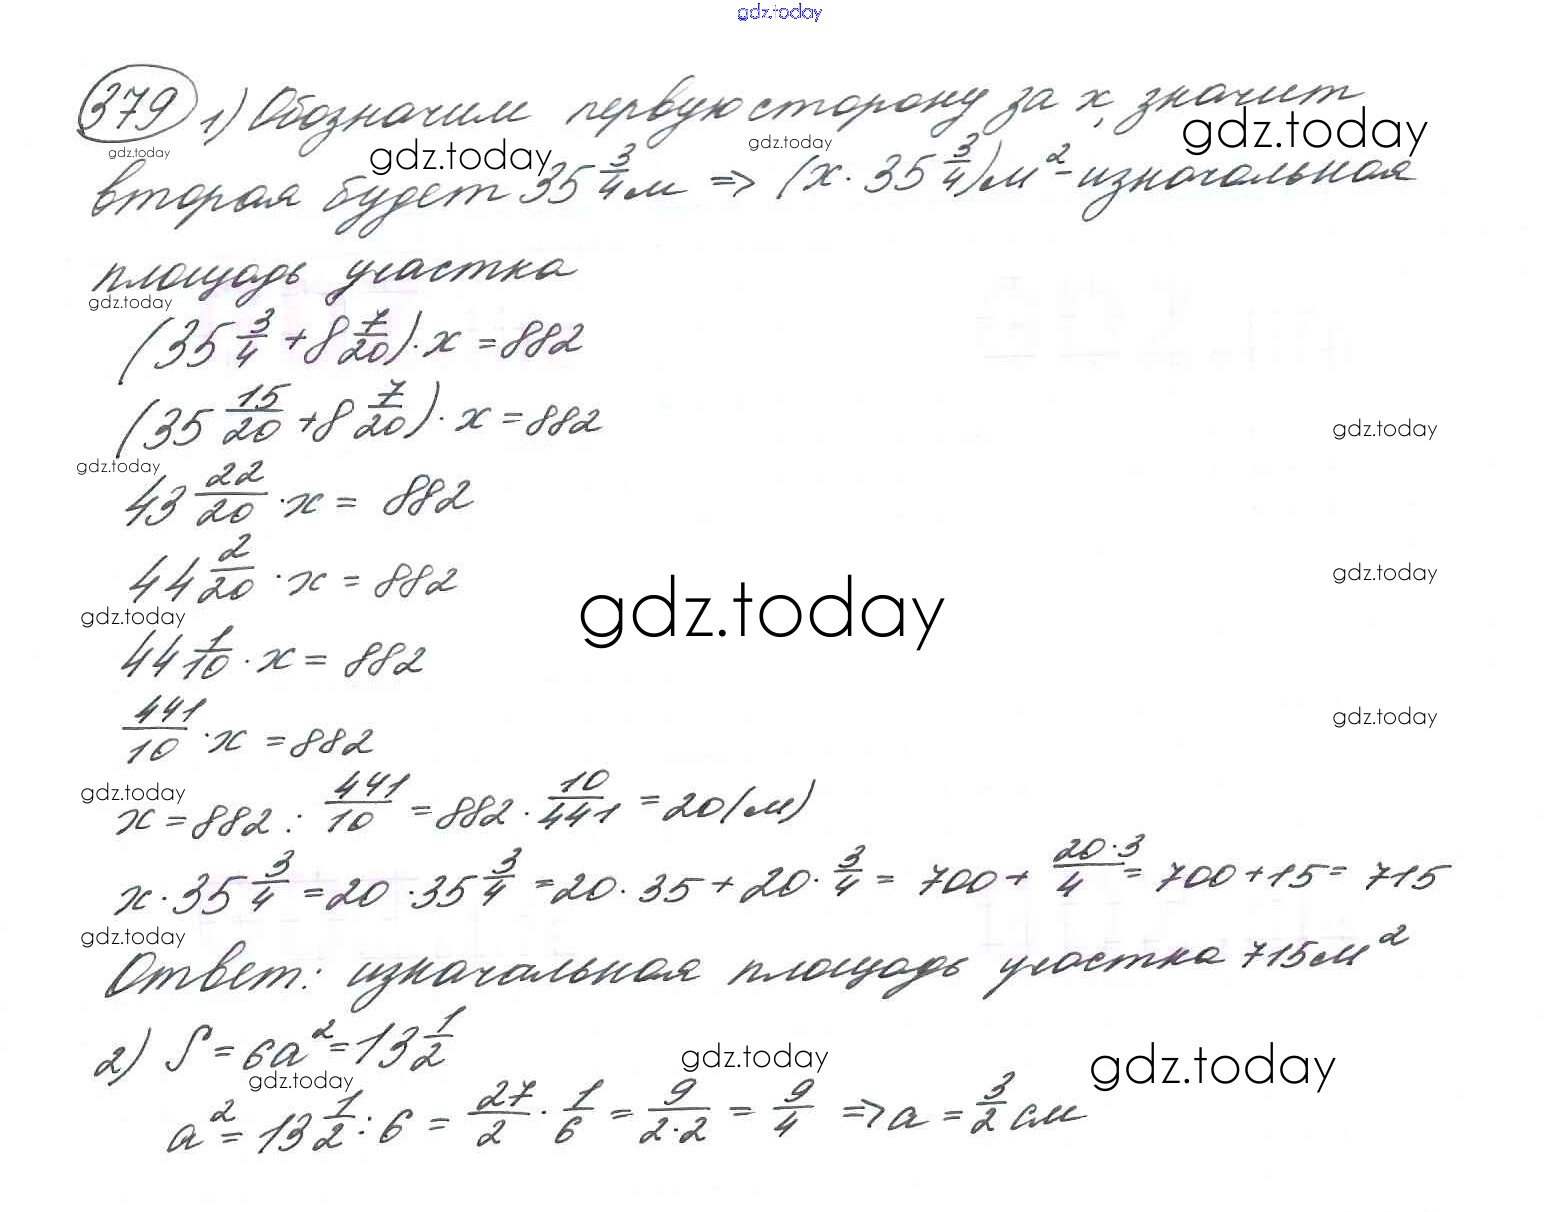 gdz.today
379 1) Обозначим первую сторону за x, значит
gdz.today gdz.today gdz.today gdz.today
вторая будет 35 3/4 м => (x · 35 3/4) м² - изначальная
площадь участка
gdz.today
(35 3/4 + 8 7/20) · x = 882
(35 15/20 + 8 7/20) · x = 882
gdz.today
gdz.today
43 22/20 · x = 882
44 2/20 · x = 882
gdz.today
gdz.today gdz.today
44 1/10 · x = 882
441/10 · x = 882
gdz.today
gdz.today
x = 882 : 441/10 = 882 · 10/441 = 20 (м)
x · 35 3/4 = 20 · 35 3/4 = 20 · 35 + 20 · 3/4 = 700 + 20·3/4 = 700 + 15 = 715
gdz.today
Ответ: изначальная площадь участка 715 м²
2) S = 6a² = 13 1/2
gdz.today gdz.today gdz.today
a² = 13 1/2 : 6 = 27/2 · 1/6 = 9/2·2 = 9/4 => a = 3/2 см